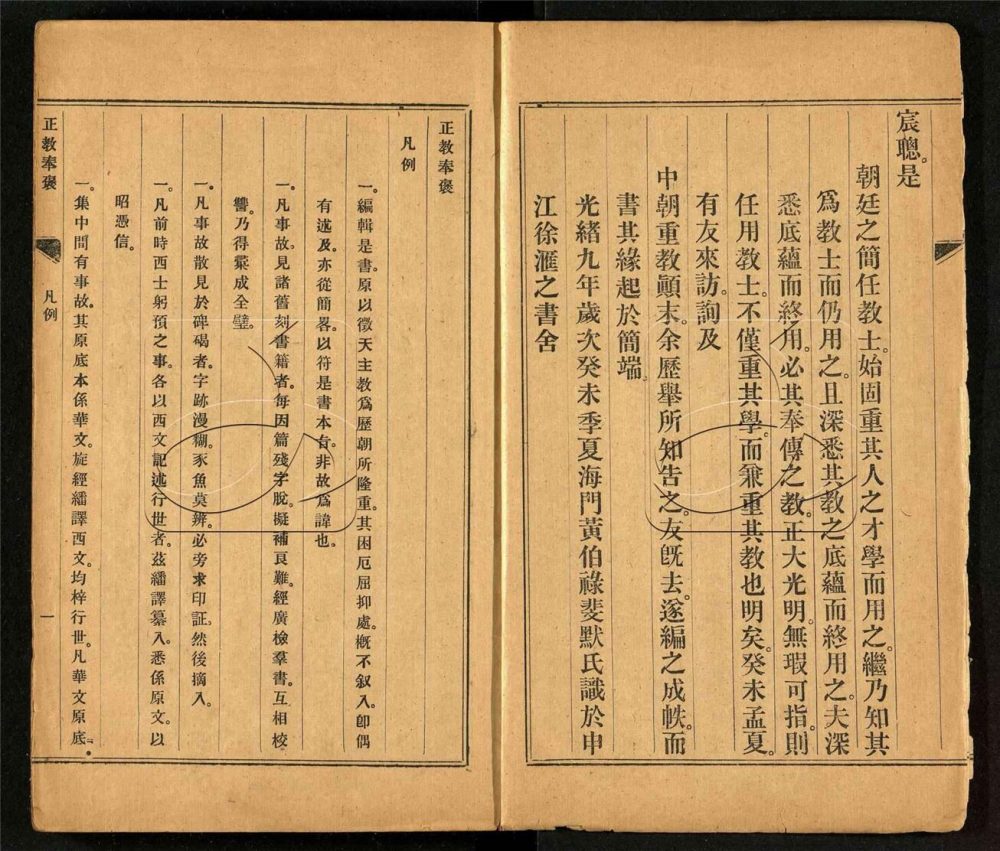 宸聰。是
朝廷之簡任教士。始固重其人之才學而用之。繼乃知其
爲教士而仍用之。且深悉其教之底蘊而終用之。夫深
悉底蘊而終用。必其奉傳之教。正大光明。無瑕可指。則
任用教士。不僅重其學。而兼重其教也明矣。癸未孟夏。
有友來訪。詢及
中朝重教顚末。余歷舉所知告之。友旣去。遂編之成帙。而
書其緣起於簡端。
光緒九年歲次癸未季夏海門黃伯祿斐默氏識於申
江徐滙之書舍
正教奉褒
凡例
一。編輯是書。原以徵天主教爲歷朝所隆重。其困厄屈抑處。槪不叙入。卽偶
有述及。亦從簡畧。以符是書本旨。非故爲諱也。
一。凡事故。見諸舊刻書籍者。每因篇殘字脫。擬補良難。經廣檢羣書。互相校
讐。乃得彙成全璧。
一。凡事故散見於碑碣者。字跡漫糊。豕魚莫辨。必旁求印証。然後摘入。
一。凡前時西士躬預之事。各以西文記述行世者。茲繙譯纂入。悉係原文。以
昭憑信。
一。集中間有事故。其原底本係華文。旋經繙譯西文。均梓行世。凡華文原底
正教奉褒
凡例
一